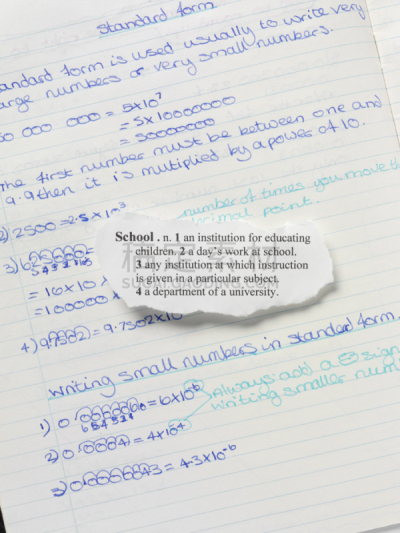 standard form
standard form is used usually to write very
large numbers or very small numbers.
000 000 = 5x10⁷
= 5x10000000
= 50000000
The first number must be between one and
9.9 then it is multiplied by a power of 10.
number of times you move the
2) 2500 = 2.5 x 10³
point.
3)
= 10 x 10 x
= 100000 x
4) 97502 = 9.7502x10
School . n. 1 an institution for educating
children. 2 a day's work at school.
3 any institution at which instruction
is given in a particular subject.
4 a department of a university.
writing small numbers in standard form.
Always add a ⊖ sign
writing smaller num
1) 0.000006 = 6x10⁻⁶
6 5 4 3 2 1
2) 0.0004 = 4x10⁻⁴
3) 0.0000043 = 4.3x10⁻⁶